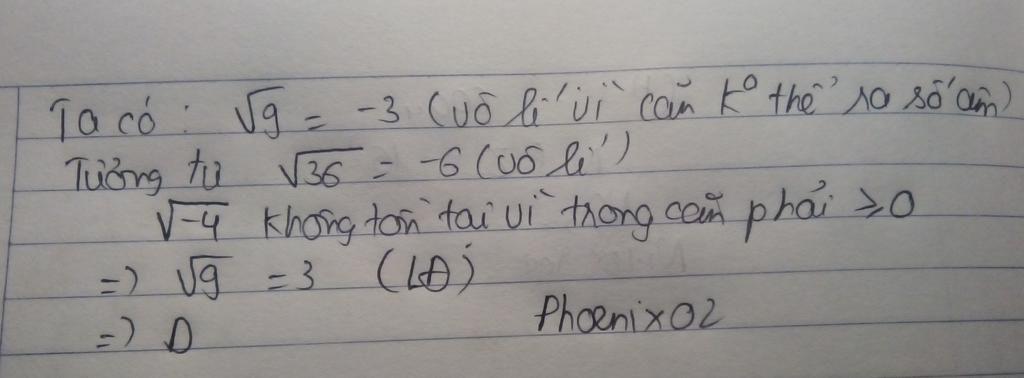 Ta có: √9 = -3 (vô lí vì căn k° thể ra số âm)
Tương tự √36 = -6 (vô lí)
√-4 không tồn tại vì trong căn phải ≥0
=) √9 = 3 (LĐ)
=) D
Phoenix02